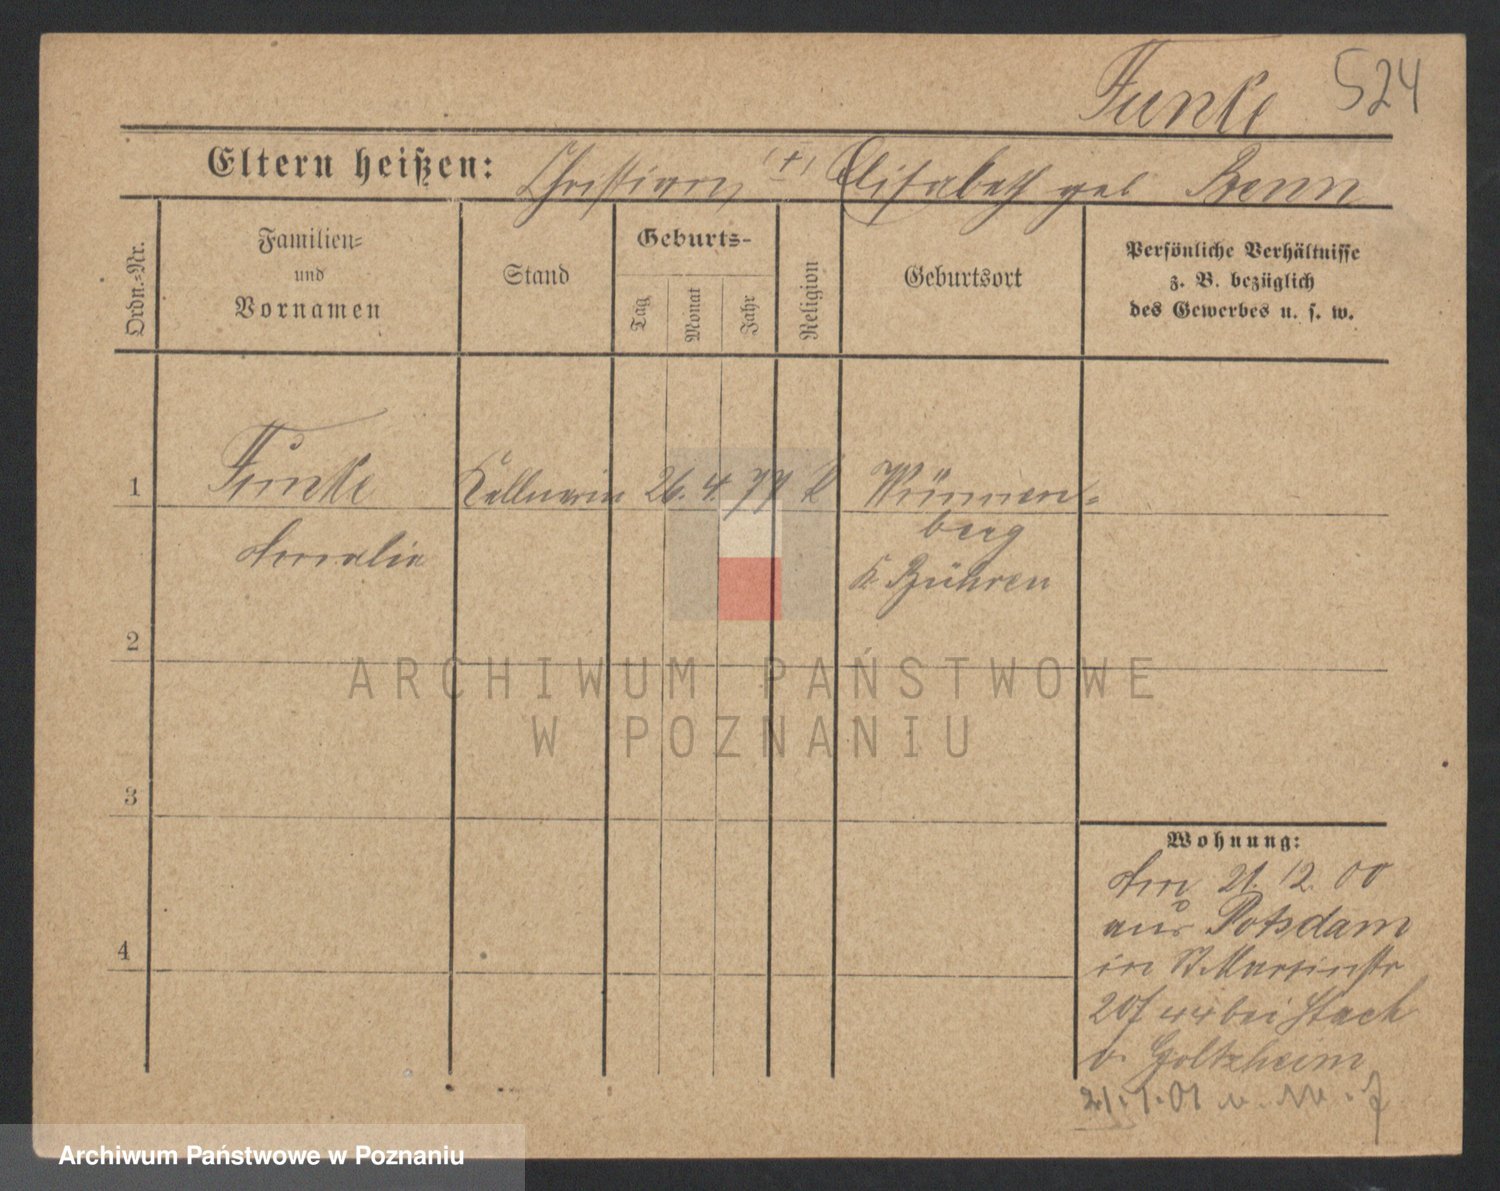 Funke 524
Eltern heißen: Christian (†) Elisabeth geb Benn
Ordn.=Nr.
Familien=
und
Vornamen
Stand
Geburts-
Tag
Monat
Jahr
Religion
Geburtsort
Persönliche Verhältnisse
z. B. bezüglich
des Gewerbes u. s. w.
1
Funke Kellnerin 26. 4. 77 k Wünnen=
berg
Amalie
K. Bühren
2
ARCHIWUM PAŃSTWOWE
W POZNANIU
3
Wohnung:
Am 21. 12. 00
aus Potsdam
4
in St Martinstr
bei Stach
v. Goltzheim
21.1.01
Archiwum Państwowe w Poznaniu